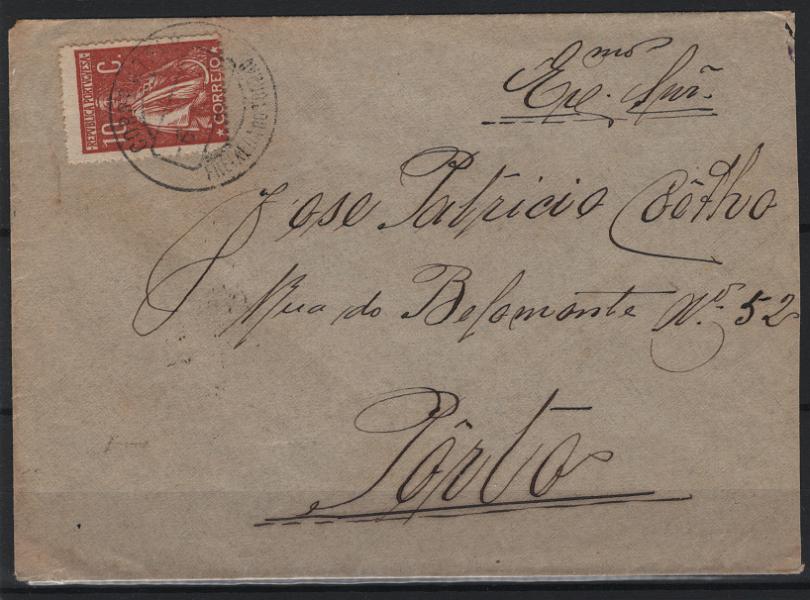 REPUBLICA PORTUGUESA
10 C.
CORREIO
Exe.mo Snr.
Jose Patricio Coêlho
Rua do Belomonte Nº 52
Pôrto